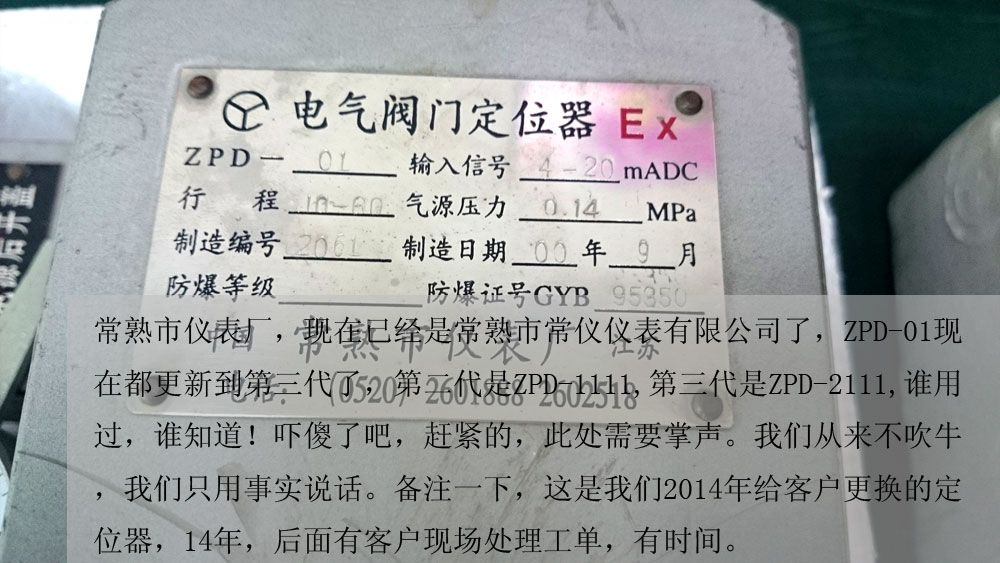 电气阀门定位器 Ex
ZPD— 01 输入信号 4-20 mADC
行 程 10-80 气源压力 0.14 MPa
制造编号 2061 制造日期 00 年 9 月
防爆等级 防爆证号GYB 95350
中国 常熟市仪表厂 江苏
电话: (0520) 2601888 2602518
后开盖
常熟市仪表厂，现在已经是常熟市常仪仪表有限公司了，ZPD-01现
在都更新到第三代了，第二代是ZPD-1111,第三代是ZPD-2111,谁用
过，谁知道！吓傻了吧，赶紧的，此处需要掌声。我们从来不吹牛
，我们只用事实说话。备注一下，这是我们2014年给客户更换的定
位器，14年，后面有客户现场处理工单，有时间。